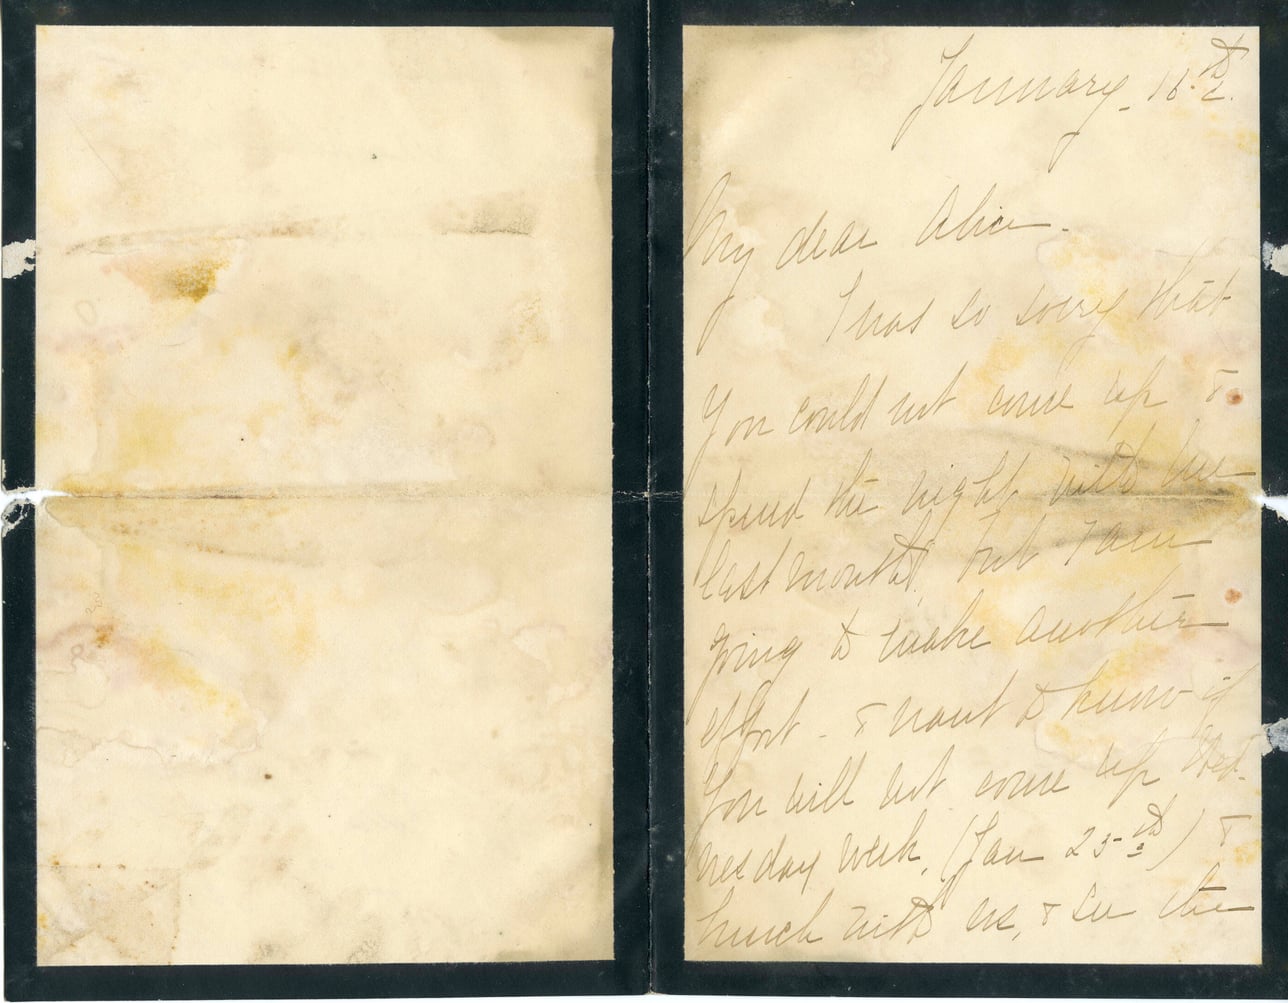 January 16th.
My dear Alice.
I was so sorry that
you could not come up &
spend the night with me
last month, but I am
going to make another
effort - & want to know if
you will not come up Wed-
nesday week, (Jan 25th) &
lunch with us, & see the